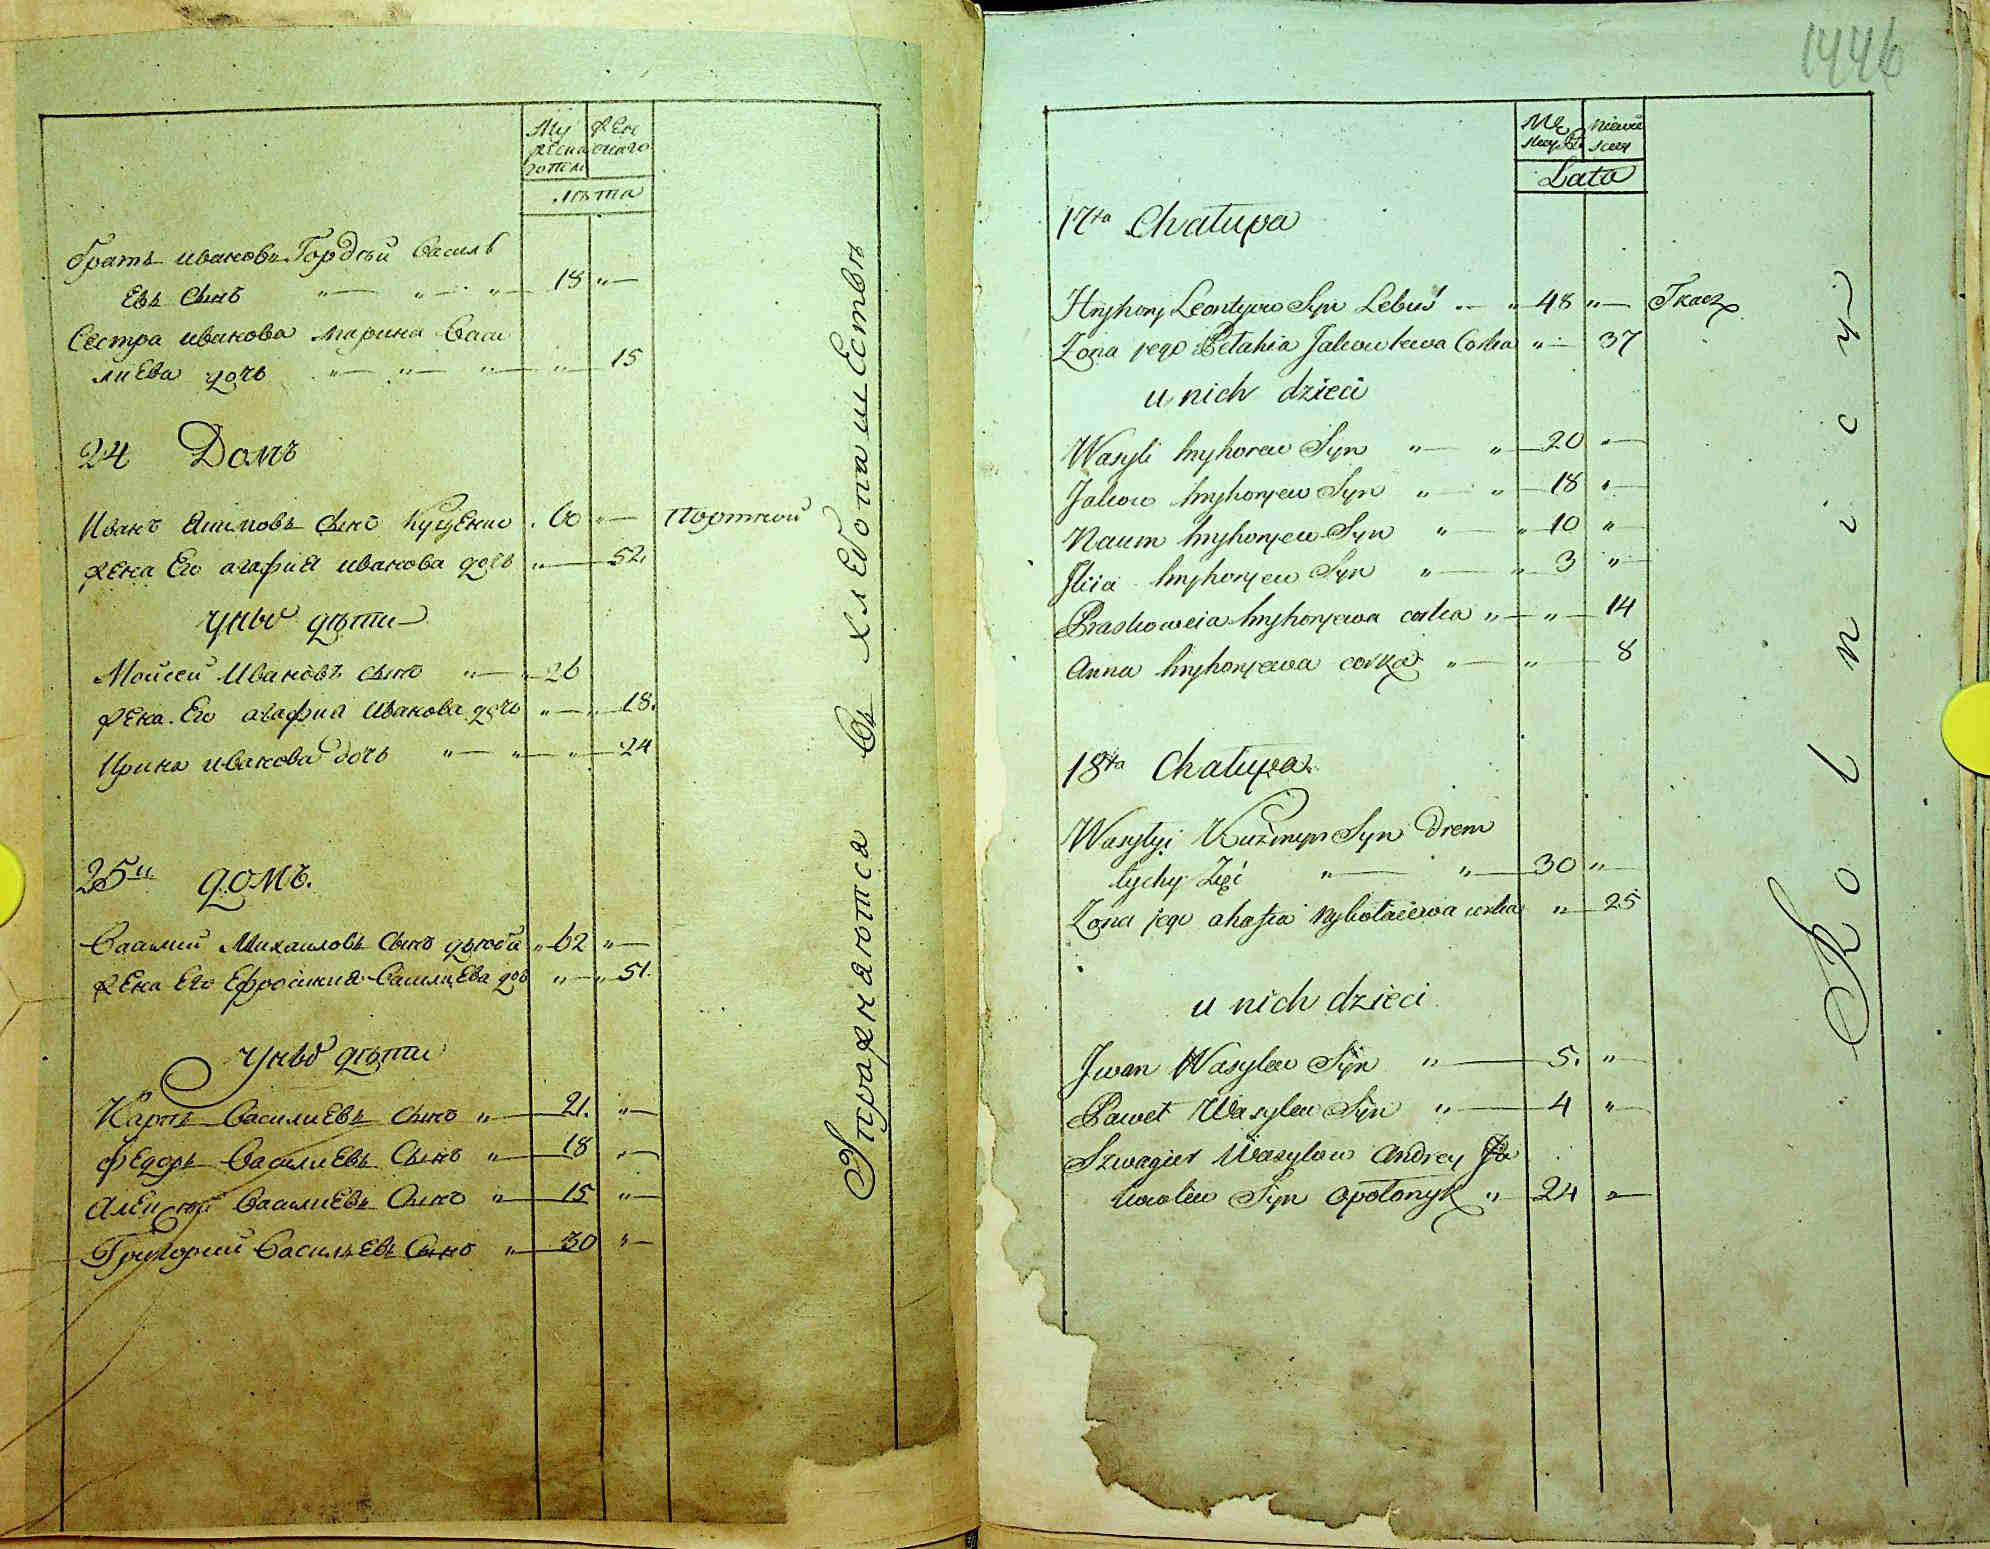 Му
жеска
го пола
Жен
скаго
лѣта
братъ ивановъ Гордѣй василь
евъ сынъ " " " 18 "
Сестра иванова марина васи
лиева дочь " " " " 15
24 Домъ
Иванъ Якимовъ сынъ Куценко 60 " портной
жена Его агафия иванова дочь " 52
у нихъ дѣти
Мойсей Ивановъ сынъ " " 26
жена Его агафия Иванова дочь " " 18.
Ирина иванова дочь " " " 24
25й домъ.
василий Михаиловъ сынъ " 62 "
жена Его Ефросиния василиева доч " " 51.
у нихъ дѣти
Карпъ василиевъ сынъ " 21. "
федоръ василиевъ сынъ " 18 "
алексей василиевъ сынъ " 15 "
Григорий василъевъ сынъ " 30 "
Упражняютса въ хлебопашествѣ
1446
Mę
skiey
niewie
skiey
Lata
17ta Chałupa
Hryhory Leontyew Syn Lebuś " 48 " Tkacz
Żona jego Petahia Jakowlewa Corka " 37
u nich dzieci
Wasyli hryhorew Syn " " 20 "
Jakow hryhoryew Syn " " 18 "
Naum hryhoryew Syn " " 10 "
Jliia hryhoryew Syn " " 3 "
Praskoweia hryhoryewa corka " " 14
Anna hryhoryewa corka " " 8
18ta Chałupa
Wasylyi Kuźmyn Syn Drem
luchy Zięć " " 30 "
Żona jego ahafia Nykołaiewa corka " 25
u nich dzieci
Jwan Wasylew Syn " 5. "
Paweł Wasylew Syn " 4 "
Szwagier Wasylow Andrey Ja
kowlew Syn Opołonyk " 24 "
Rolnicy